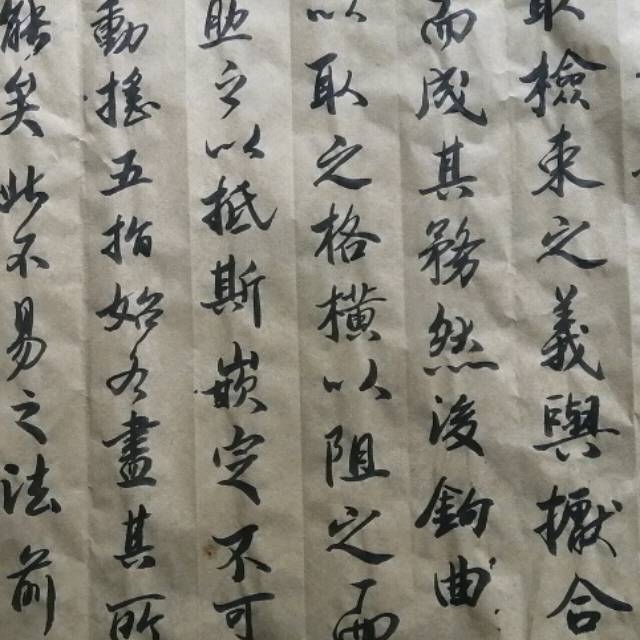 取檢束之義與擫合
而成其務然後鉤曲
以取之格橫以阻之而
助之以抵斯嵌定不可
動搖五指始各盡其所
能矣此不易之法前